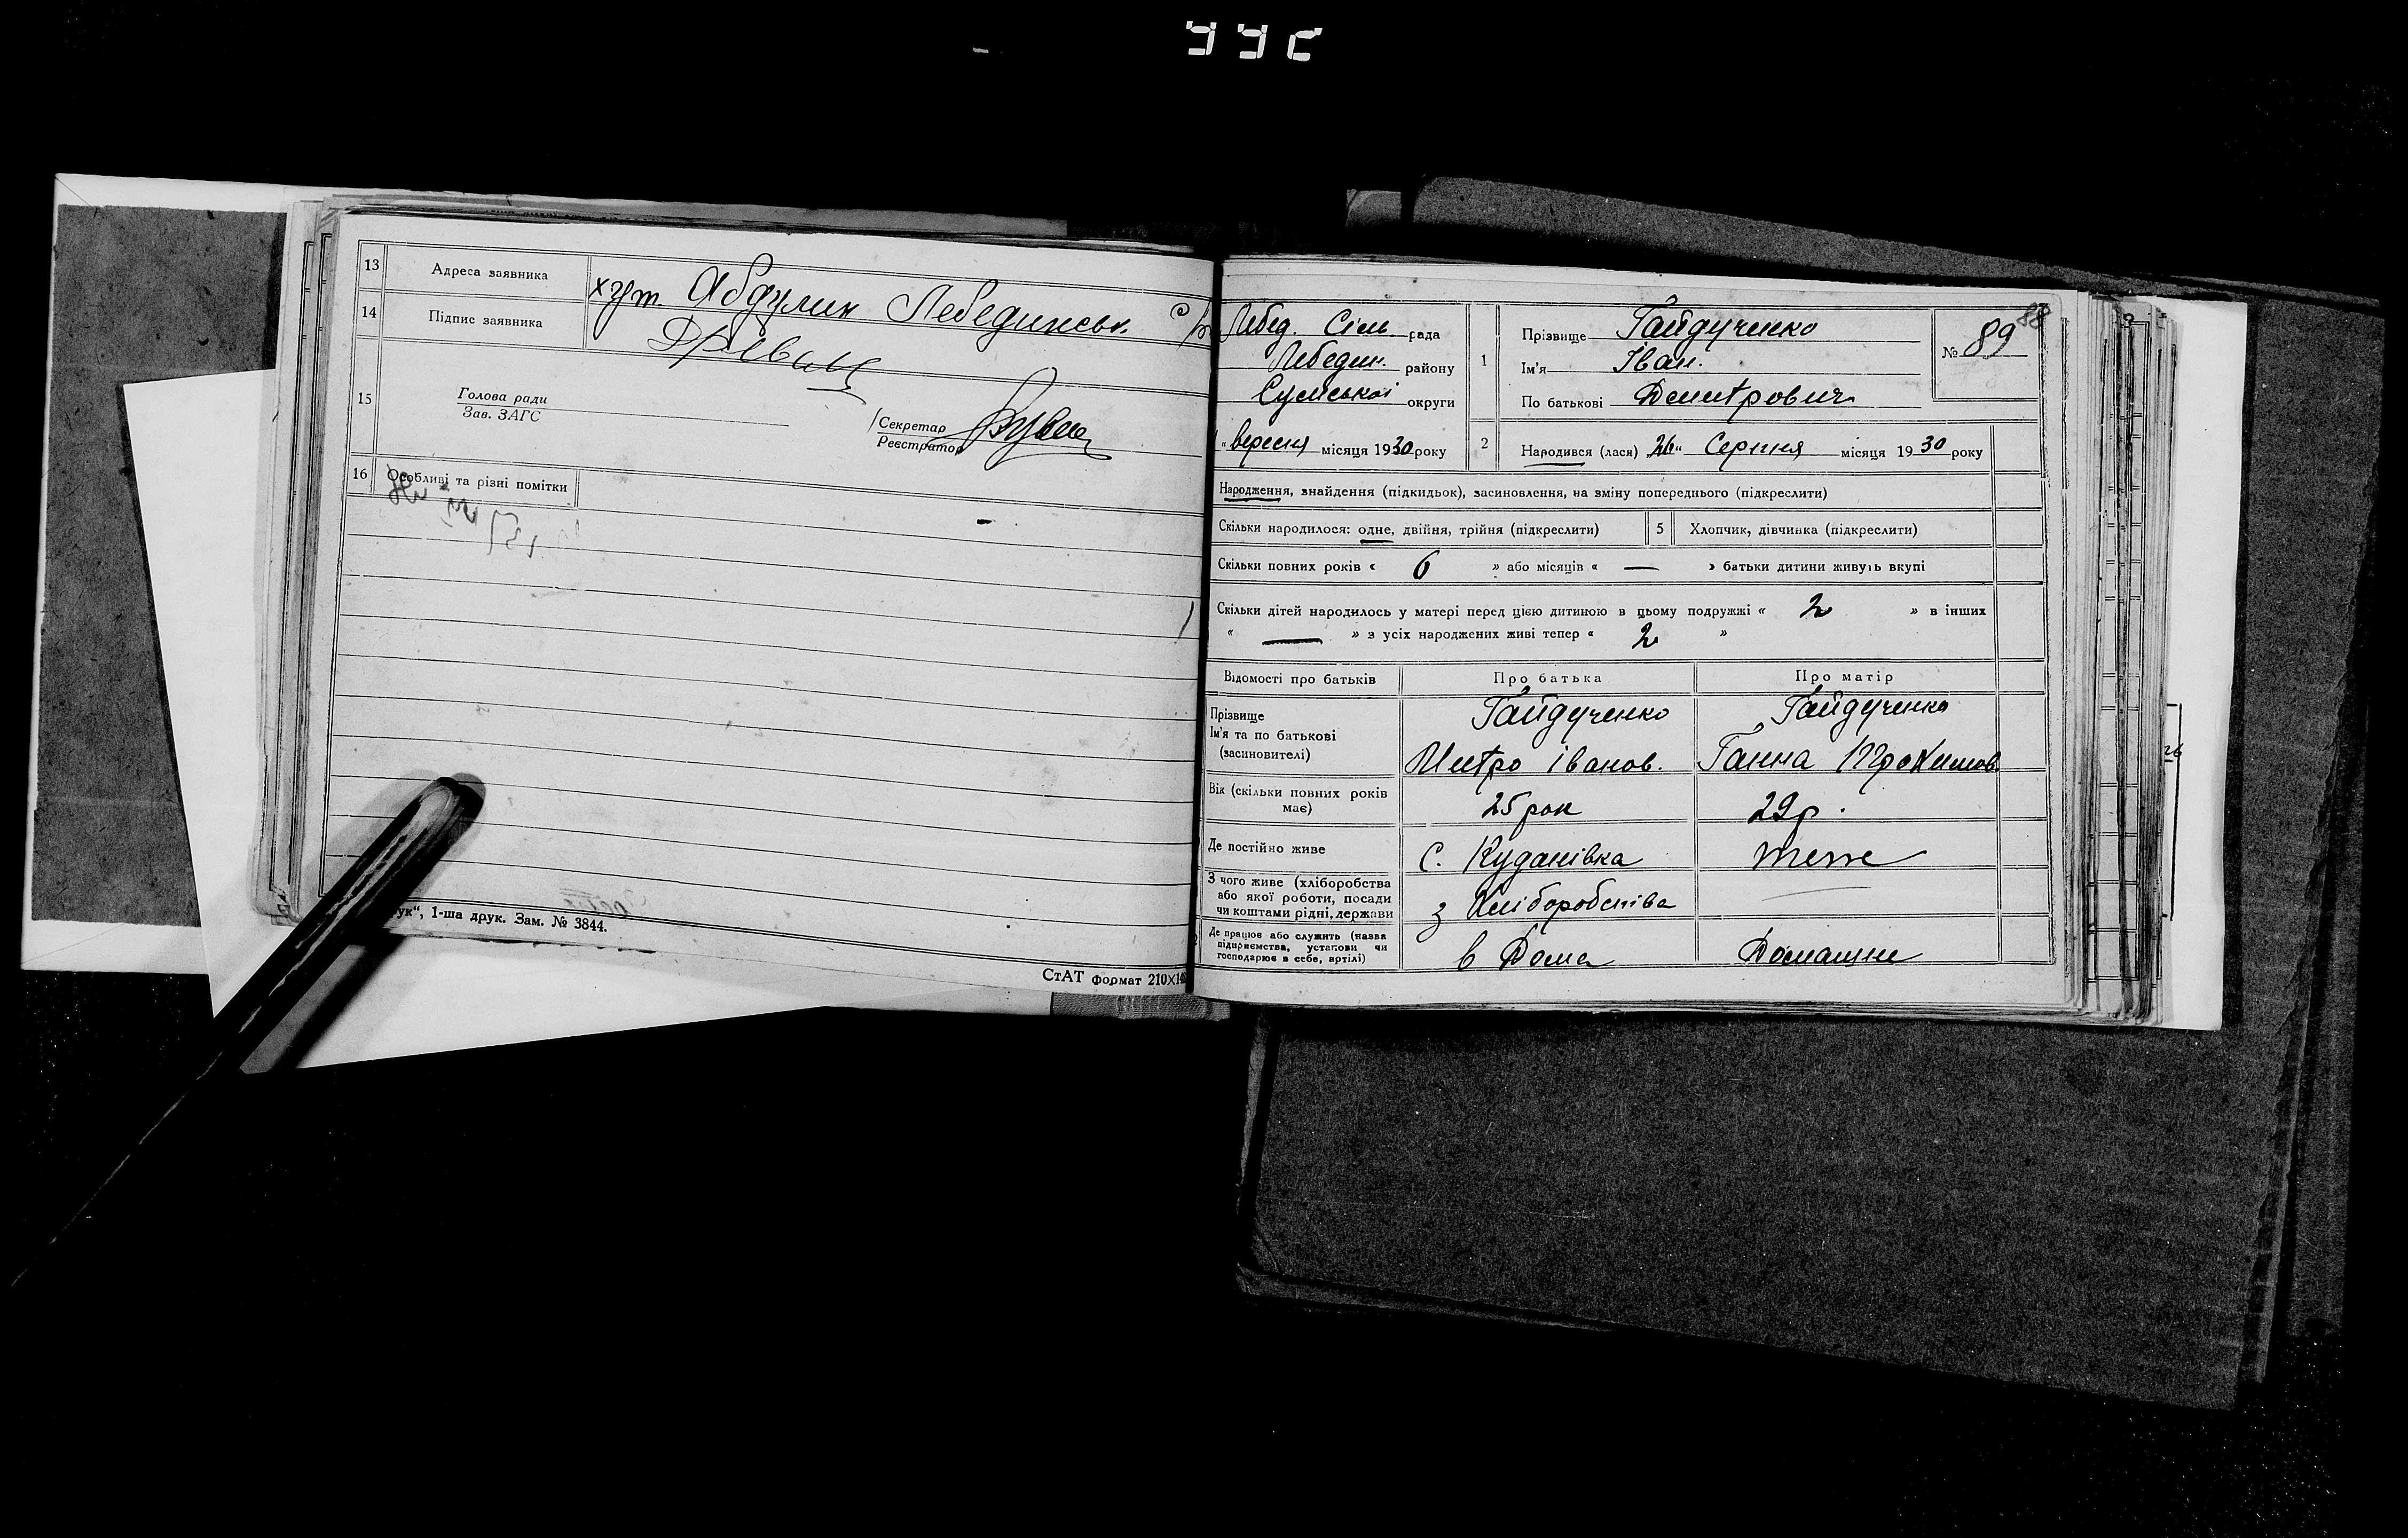 13 Адреса заявника хут. Абдулин Лебединськ. с/р
14 Підпис заявника
15 Голова ради
Зав. ЗАГС
Секретар
Реєстратор
16 Особливі та різні помітки
ук“, 1-ша друк. Зам. № 3844.
СтАТ формат 210×14
Лебед. Сіль рада
Лебедин. району
Сумської округи
„вересня місяця 1930 року
1 Прізвище Гайдученко
Ім'я Іван.
По батькові Дмитрович
№ 89
88
2 Народився (лася) 26 „ Серпня місяця 1930 року
Народження, знайдення (підкидьок), засиновлення, на зміну попереднього (підкреслити)
Скільки народилося: одне, двійня, трійня (підкреслити) 5 Хлопчик, дівчинка (підкреслити)
Скільки повних років « 6 » або місяців « — » батьки дитини живуть вкупі
Скільки дітей народилось у матері перед цією дитиною в цьому подружжі « 2 » в інших
« — » з усіх народжених живі тепер « 2 »
Відомості про батьків Про батька Про матір
Прізвище
Ім'я та по батькові
(засиновителі)
Гайдученко
Митро Іванов.
Гайдученко
Ганна
Вік (скільки повних років
має)
25 рок 29 р.
Де постійно живе с. Куданівка теж
З чого живе (хліборобства
або якої роботи, посади
чи коштами рідні, держави
з Хліборобства —
Де працює або служить (назва
підприємства, установи чи
господарює в себе, артілі)
в Дома Домашне